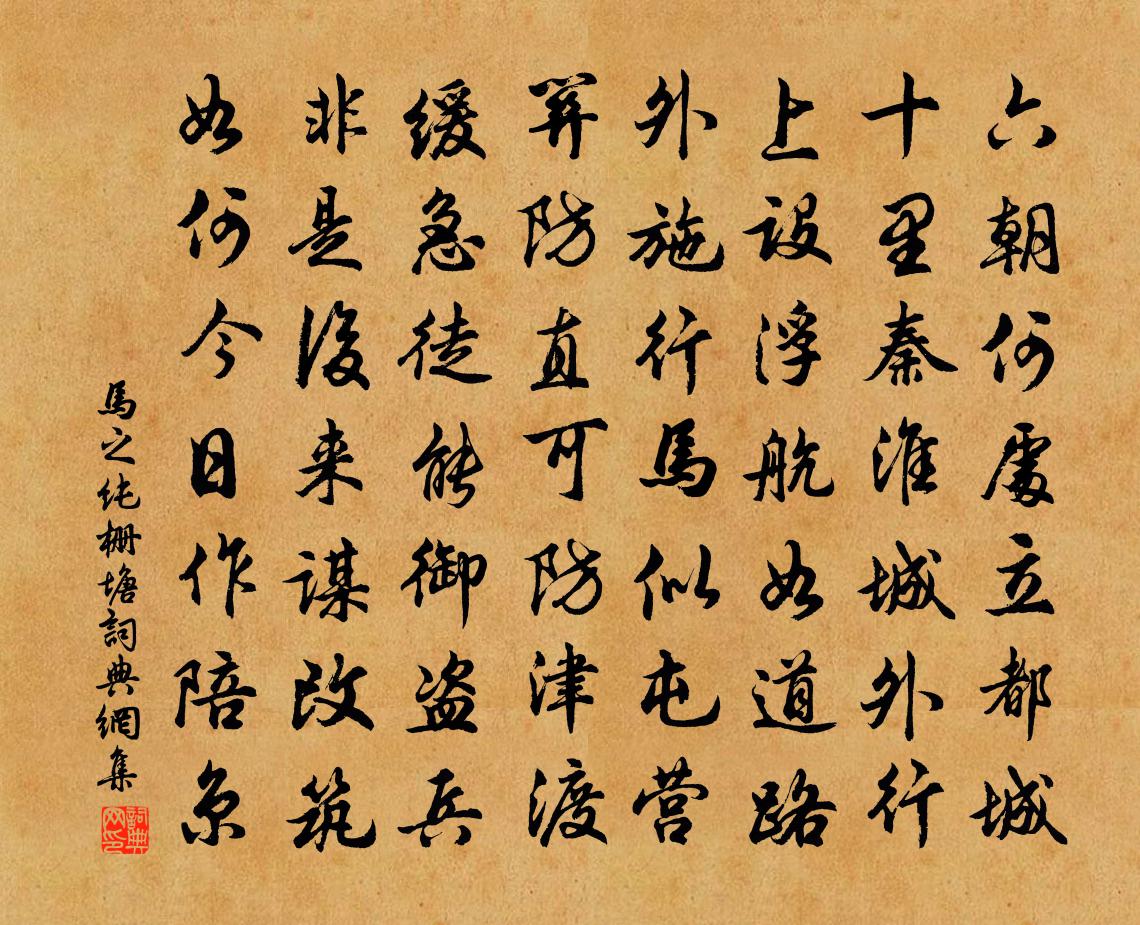 六朝何處立都城
十里秦淮城外行
上設浮航如道路
外施行馬似屯营
筭防直可防津渡
缓急徒能御盗兵
非是後来谋改筑
如何今日作陪京
馬之纯栅塘詞典網集
詞典网印